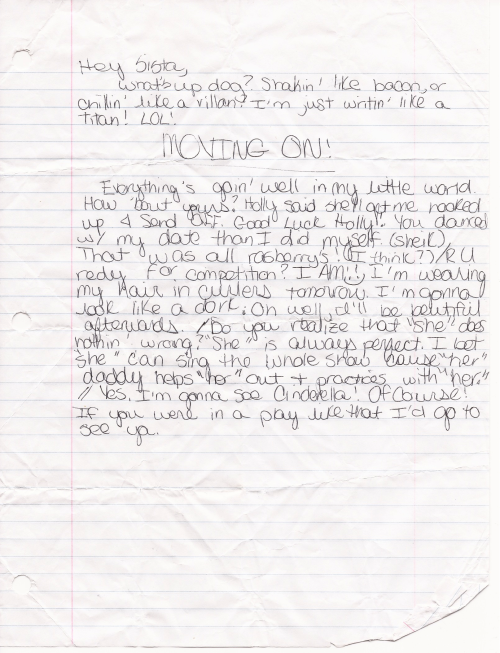 Hey Sista,
What's up dog? Shakin' like bacon, or
chillin' like a villan? I'm just writin' like a
titan! LOL!
MOVING ON!
Everything's goin' well in my little world.
How 'bout yours? Holly said she'll get me hooked
up 4 Send OFF. Good Luck Holly!! You danced
w/ my date than I did myself. (sheik)
That was all rasberrys! (I think?) / R U
redy for competition? I AM! I'm wearing
my Hair in curlers tomorrow. I'm gonna
look like a dork. Oh well, I'll be beutiful
afterwards. / Do you realize that "she" does
nothin' wrong? "She" is always perfect. I bet
"she" can sing the whole show cause "her"
daddy helps "her" out + practices with "her."
// Yes. I'm gonna see Cinderella! Of Course!
If you were in a play like that I'd go to
see ya.